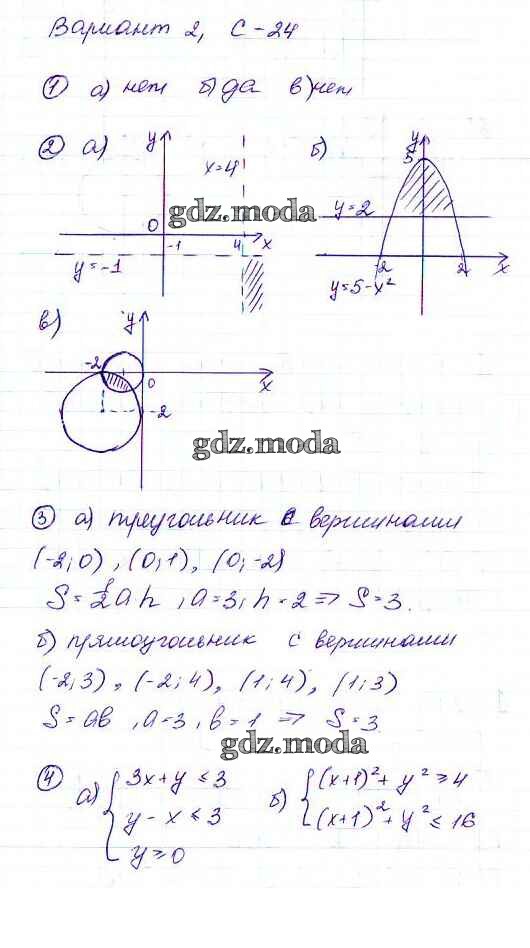 Вариант 2, С-24
① а) нет б) да в) нет
② а) y x=4 б) y 5
0 -1 4 x y=2
y=-1 -2 2 x
y=5-x²
gdz.moda
в) y
-2 0 x
-2
gdz.moda
③ а) треугольник с вершинами
(-2;0), (0;1), (0;-2)
S=1/2ah, a=3, h=2 ⇒ S=3.
б) прямоугольник с вершинами
(-2;3), (-2;4), (1;4), (1;3)
S=ab, a=3, b=1 ⇒ S=3
gdz.moda
④ а) { 3x+y≤3 б) { (x+1)²+y²≥4
y-x≤3 (x+1)²+y²≤16
y≥0